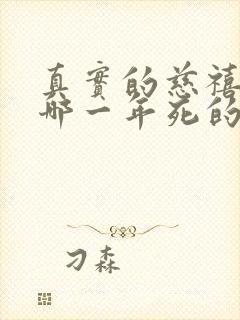 真實的慈禧
哪一年死的
刁森